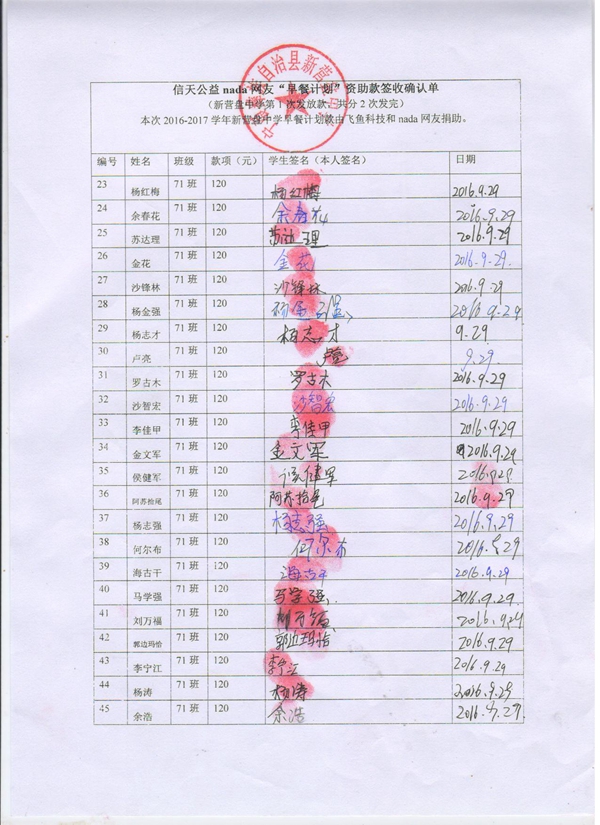 信天公益 nada 网友“早餐计划”资助款签收确认单
（新营盘中学第 1 次发放款，共分 2 次发完）
本次 2016-2017 学年新营盘中学早餐计划款由飞鱼科技和 nada 网友捐助。
自治县新营盘
编号 姓名 班级 款项（元） 学生签名（本人签名） 日期
23 杨红梅 71 班 120 杨红梅 2016.9.29
24 余春花 71 班 120 余春花 2016.9.29
25 苏达理 71 班 120 苏达理 2016.9.29
26 金花 71 班 120 金花 2016.9.29.
27 沙锋林 71 班 120 沙锋林 2016.9.29
28 杨金强 71 班 120 杨金强 2016.9.29
29 杨志才 71 班 120 杨志才 9.29
30 卢亮 71 班 120 卢亮 9.29.
31 罗古木 71 班 120 罗古木 2016.9.29
32 沙智宏 71 班 120 沙智宏 2016.9.29
33 李佳甲 71 班 120 李佳甲 2016.9.29
34 金文军 71 班 120 金文军 2016.9.29
35 侯健军 71 班 120 侯健军 2016.9.29
36 阿苏拾尾 71 班 120 阿苏拾尾 2016.9.29
37 杨志强 71 班 120 杨志强 2016.9.29
38 何尔布 71 班 120 何尔布 2016.9.29
39 海古干 71 班 120 海古干 2016.9.29
40 马学强 71 班 120 马学强 2016.9.29
41 刘万福 71 班 120 刘万福 2016.9.29
42 郭边玛恰 71 班 120 郭边玛恰 2016.9.29
43 李宁江 71 班 120 李宁江 2016.9.29
44 杨涛 71 班 120 杨涛 2016.9.29
45 余浩 71 班 120 余浩 2016.9.29.